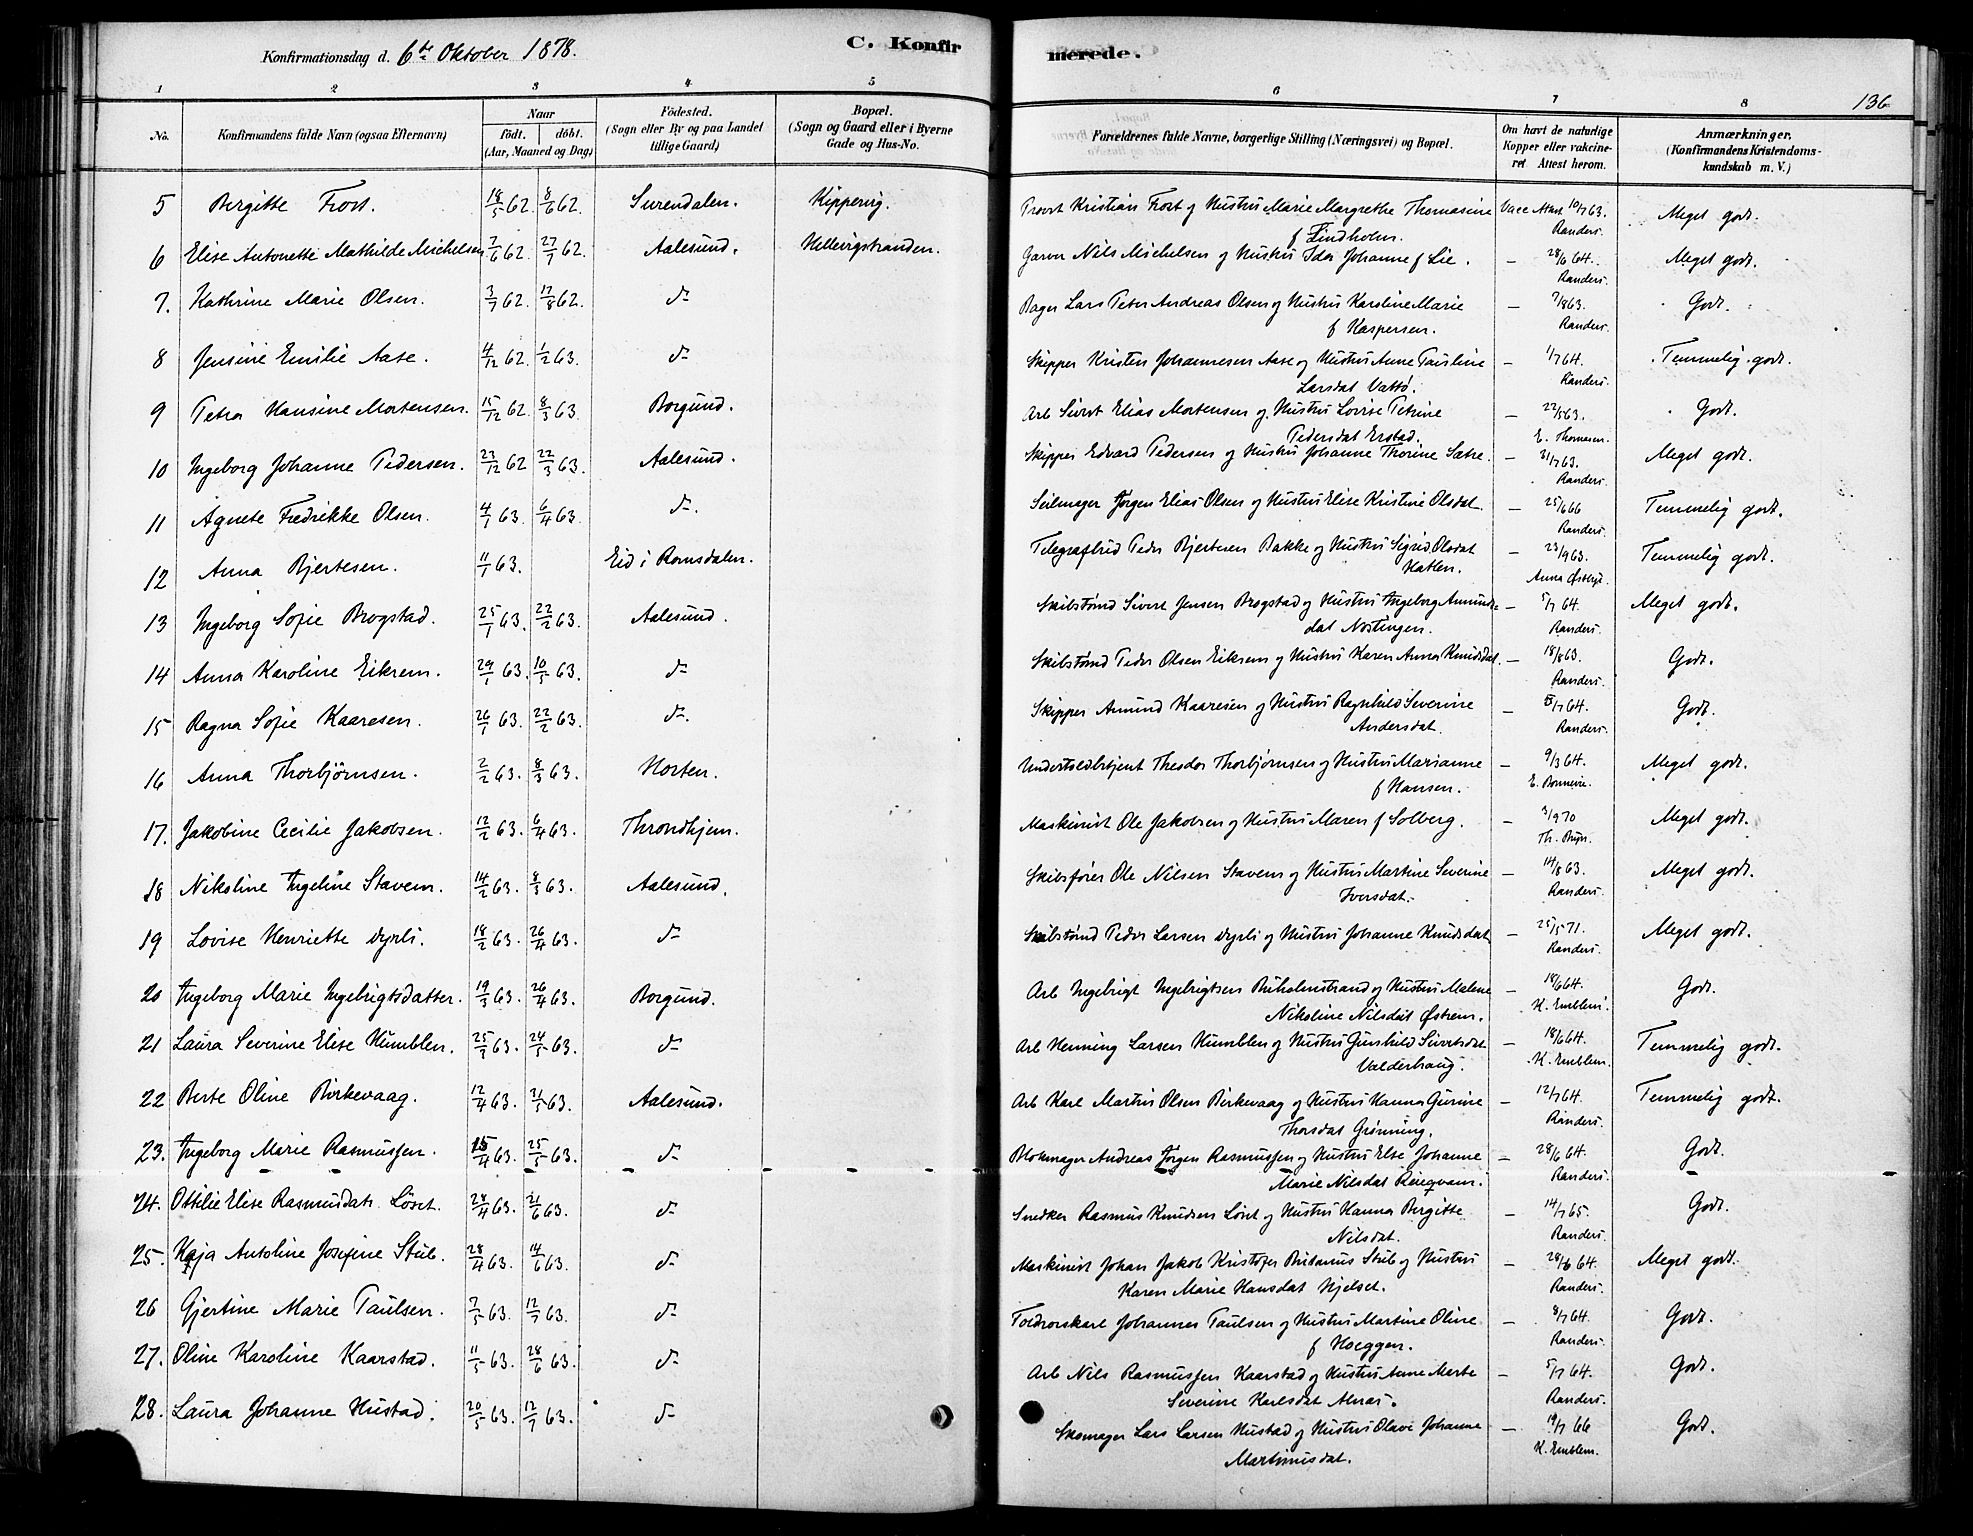 Konfirmationsdag d. 6te Oktober 1878.
C. Konfirmerede.
136
1 2 3 4 5 6 7 8
No. Konfirmandens fulde Navn (ogsaa Efternavn) Naar født. døbt. (Aar, Maaned og Dag) Fødested. (Sogn eller By og paa Landet tillige Gaard.) Bopæl. (Sogn og Gaard eller i Byerne Gade og Hus-No. Forældrenes fulde Navne, borgerlige Stilling (Næringsvei) og Bopæl. Om havt de naturlige Kopper eller vakcineret Attest herom. Anmærkninger. (Konfirmandens Kristendomskundskab m. V.)
5 Birgitte Frost. 18/5 62. 8/6 62. Surendalen. Kippervig. Provst Kristian Frost og Hustru Marie Margrethe Thomasine Vacc Attest 10/7 63. Meget godt.
f Lindholm. Randers.
6 Elise Antonette Mathilde Michelsen 7/6 62. 27/7 62. Aalesund. Hellevigstranden. Garver Nils Michelsen og Hustru Ida Johanne f Lie. – 28/6 64. Meget godt.
Randers.
7. Kathrine Marie Olsen. 3/7 62. 17/8 62. do Bager Lars Peter Andreas Olsen og Hustru Karoline Marie – 7/8 63. Godt.
f Kaspersen. Randers.
8 Jensine Emilie Aase. 4/12 62. 1/2 63. do Skipper Kristen Johannesen Aase og Hustru Anne Pauline – 1/7 64. Temmelig godt.
Larsdat Vattø. Randers.
9 Petra Hansine Mortensen. 15/12 62. 8/3 63. Borgund. Arb Sivert Elias Mortensen og Hustru Lovise Petrine – 22/5 63. Godt.
Pedersdat Erstad. E. Thomesen.
10 Ingeborg Johanne Pedersen. 23/12 62 22/3 63. Aalesund. Skipper Edvard Pedersen og Hustru Johanne Thorine Sætre. – 31/7 63. Meget godt.
Randers.
11 Agnete Fredrikke Olsen. 4/1 63. 6/4 63. do. Seilmager Jørgen Elias Olsen og Hustru Elise Kristine Olsdat. – 25/6 66 Temmelig godt.
Randers.
12 Anna Bjertesen. 11/1 63. Eid i Romsdalen. Telegrafbud Peder Bjertesen Bakke og Hustru Sigrid Olsdat – 23/9 63. Temmelig godt.
Hatlen.
13 Ingeborg Sofie Brogstad. 25/1 63. 22/2 63. Aalesund. Skibstømd Sivert Jensen Brogstad og Hustru Ingeborg Amunds – 5/7 64. Meget godt.
dat Nostingen. Randers.
14 Anna Karoline Eikrem. 29/1 63. 10/5 63. do Skibstømd Peder Olsen Eikrem og Hustru Karen Anna Knudsdat. – 18/8 63. Godt.
Randers.
15 Ragna Sofie Kaaresen. 26/1 63. 22/2 63. do. Skipper Amund Kaaresen og Hustru Ragnhild Severine – 5/7 64. Godt.
Andersdat. Randers.
16 Anna Thorbjørnsen. 2/2 63. 8/3 63. Horten. Undertoldbetjent Theodor Thorbjørnsen og Hustru Marianne – 9/3 64. Meget godt.
f Hansen. E. Bonnevie.
17. Jakobine Cecilie Jakobsen. 12/2 63. 6/4 63. Throndhjem. Maskinist Ole Jakobsen og Hustru Maren f Solberg. – 3/9 70 Meget godt.
18 Nikoline Ingeline Stavem. 14/2 63. 8/3 63. Aalesund. Skibsfører Ole Nilsen Stavem og Hustru Martine Severine – 14/8 63. Meget godt.
Iversdat. Randers.
19 Lovise Henriette Dyrli. 18/2 63. 26/4 63. do Skibstømd Peder Larsen Dyrli og Hustru Johanne Knudsdat – 25/5 71. Meget godt.
Randers.
20 Ingeborg Marie Ingebrigtsdatter. 19/3 63. 26/4 63. Borgund. Arb Ingebrigt Ingebrigtsen Buholmstrand og Hustru Malene – 18/6 64. Godt.
Nikoline Nilsdat Østrem. K. Emblem.
21 Laura Severine Elise Humblen. 25/3 63. 24/5 63. do Arb Henning Larsen Humblen og Hustru Gunhild Sivertsdat – 18/6 64. Temmelig godt.
Valderhaug. K. Emblem.
22 Berte Oline Birkevaag. 12/4 63. 31/5 63. Aalesund. Arb Karl Martin Olsen Birkevaag og Hustru Hanna Gurine – 12/7 64. Temmelig godt.
Thorsdat Grønning. Randers.
23. Ingeborg Marie Rasmussen. 15/4 63. 25/5 63. do Blokmager Andreas Jørgen Rasmussen og Hustru Else Johanne – 28/6 64. Godt.
Marie Nilsdat Ringvam. Randers.
24. Ottilie Elise Rasmusdatr Løset. 24/4 63. 21/6 63. do Snedker Rasmus Knudsen Løset og Hustru Hanna Birgitte – 14/7 65. Godt.
Nilsdat. Randers.
25. Kaja Antoline Josefine Stub. 28/4 63. 14/6 63. do Maskinist Johan Jakob Kristofer Stub og Hustru – 28/6 64. Meget godt.
Karen Marie Hansdat Hjelset. Randers.
26 Gjertine Marie Paulsen. 7/5 63. 12/7 63. do Toldrorskarl Johannes Paulsen og Hustru Martine Oline – 8/7 64. Godt.
f Hoeggen. Randers.
27. Oline Karoline Kaarstad. 11/5 63. 28/6 63. do Arb Nils Rasmussen Kaarstad og Hustru Anne Marte – 5/7 64. Godt.
Severine Karlsdat Alnæs. Randers.
28. Laura Johanne Hustad. 20/5 63. 12/7 63. do Skomager Lars Larsen Hustad og Hustru Olave Johanne – 19/7 66 Godt.
Martinusdat. K. Emblem.